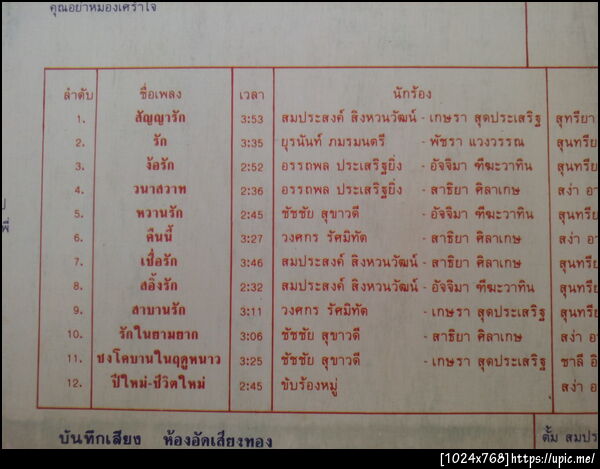 คุณอย่าหมองเศร้าใจ
ลำดับ ชื่อเพลง เวลา นักร้อง
1. สัญญารัก 3:53 สมประสงค์ สิงหวนวัฒน์ - เกษรา สุดประเสริฐ สุทรียา
2. รัก 3:35 ยุรนันท์ ภมรมนตรี - พัชรา แวงวรรณ สุนทรีย
3. ง้อรัก 2:52 อรรถพล ประเสริฐยิ่ง - อัจจิมา ฑีฆะวาทิน สุนทรีย
4. วนาสวาท 2:36 อรรถพล ประเสริฐยิ่ง - สาธิยา ศิลาเกษ สง่า อา
5. หวานรัก 2:45 ชัชชัย สุขาวดี - อัจจิมา ฑีฆะวาทิน สุนทรีย
6. คืนนี้ 3:27 วงศกร รัศมิทัต - สาธิยา ศิลาเกษ สง่า อา
7. เชื่อรัก 3:46 สมประสงค์ สิงหวนวัฒน์ - สาธิยา ศิลาเกษ สุนทรีย
8. สอิ้งรัก 2:32 สมประสงค์ สิงหวนวัฒน์ - อัจจิมา ฑีฆะวาทิน สุนทรีย
9. สาบานรัก 3:11 วงศกร รัศมิทัต - เกษรา สุดประเสริฐ สุนทรีย
10. รักในยามยาก 3:06 ชัชชัย สุขาวดี - สาธิยา ศิลาเกษ สง่า อา
11. ชงโคบานในฤดูหนาว 3:25 ชัชชัย สุขาวดี - เกษรา สุดประเสริฐ ชาลี อิ
12. ปีใหม่-ชีวิตใหม่ 2:45 ขับร้องหมู่ สง่า อา
บันทึกเสียง ห้องอัดเสียงทอง ตั้ม สมประ
[1024x768]https://upic.me/